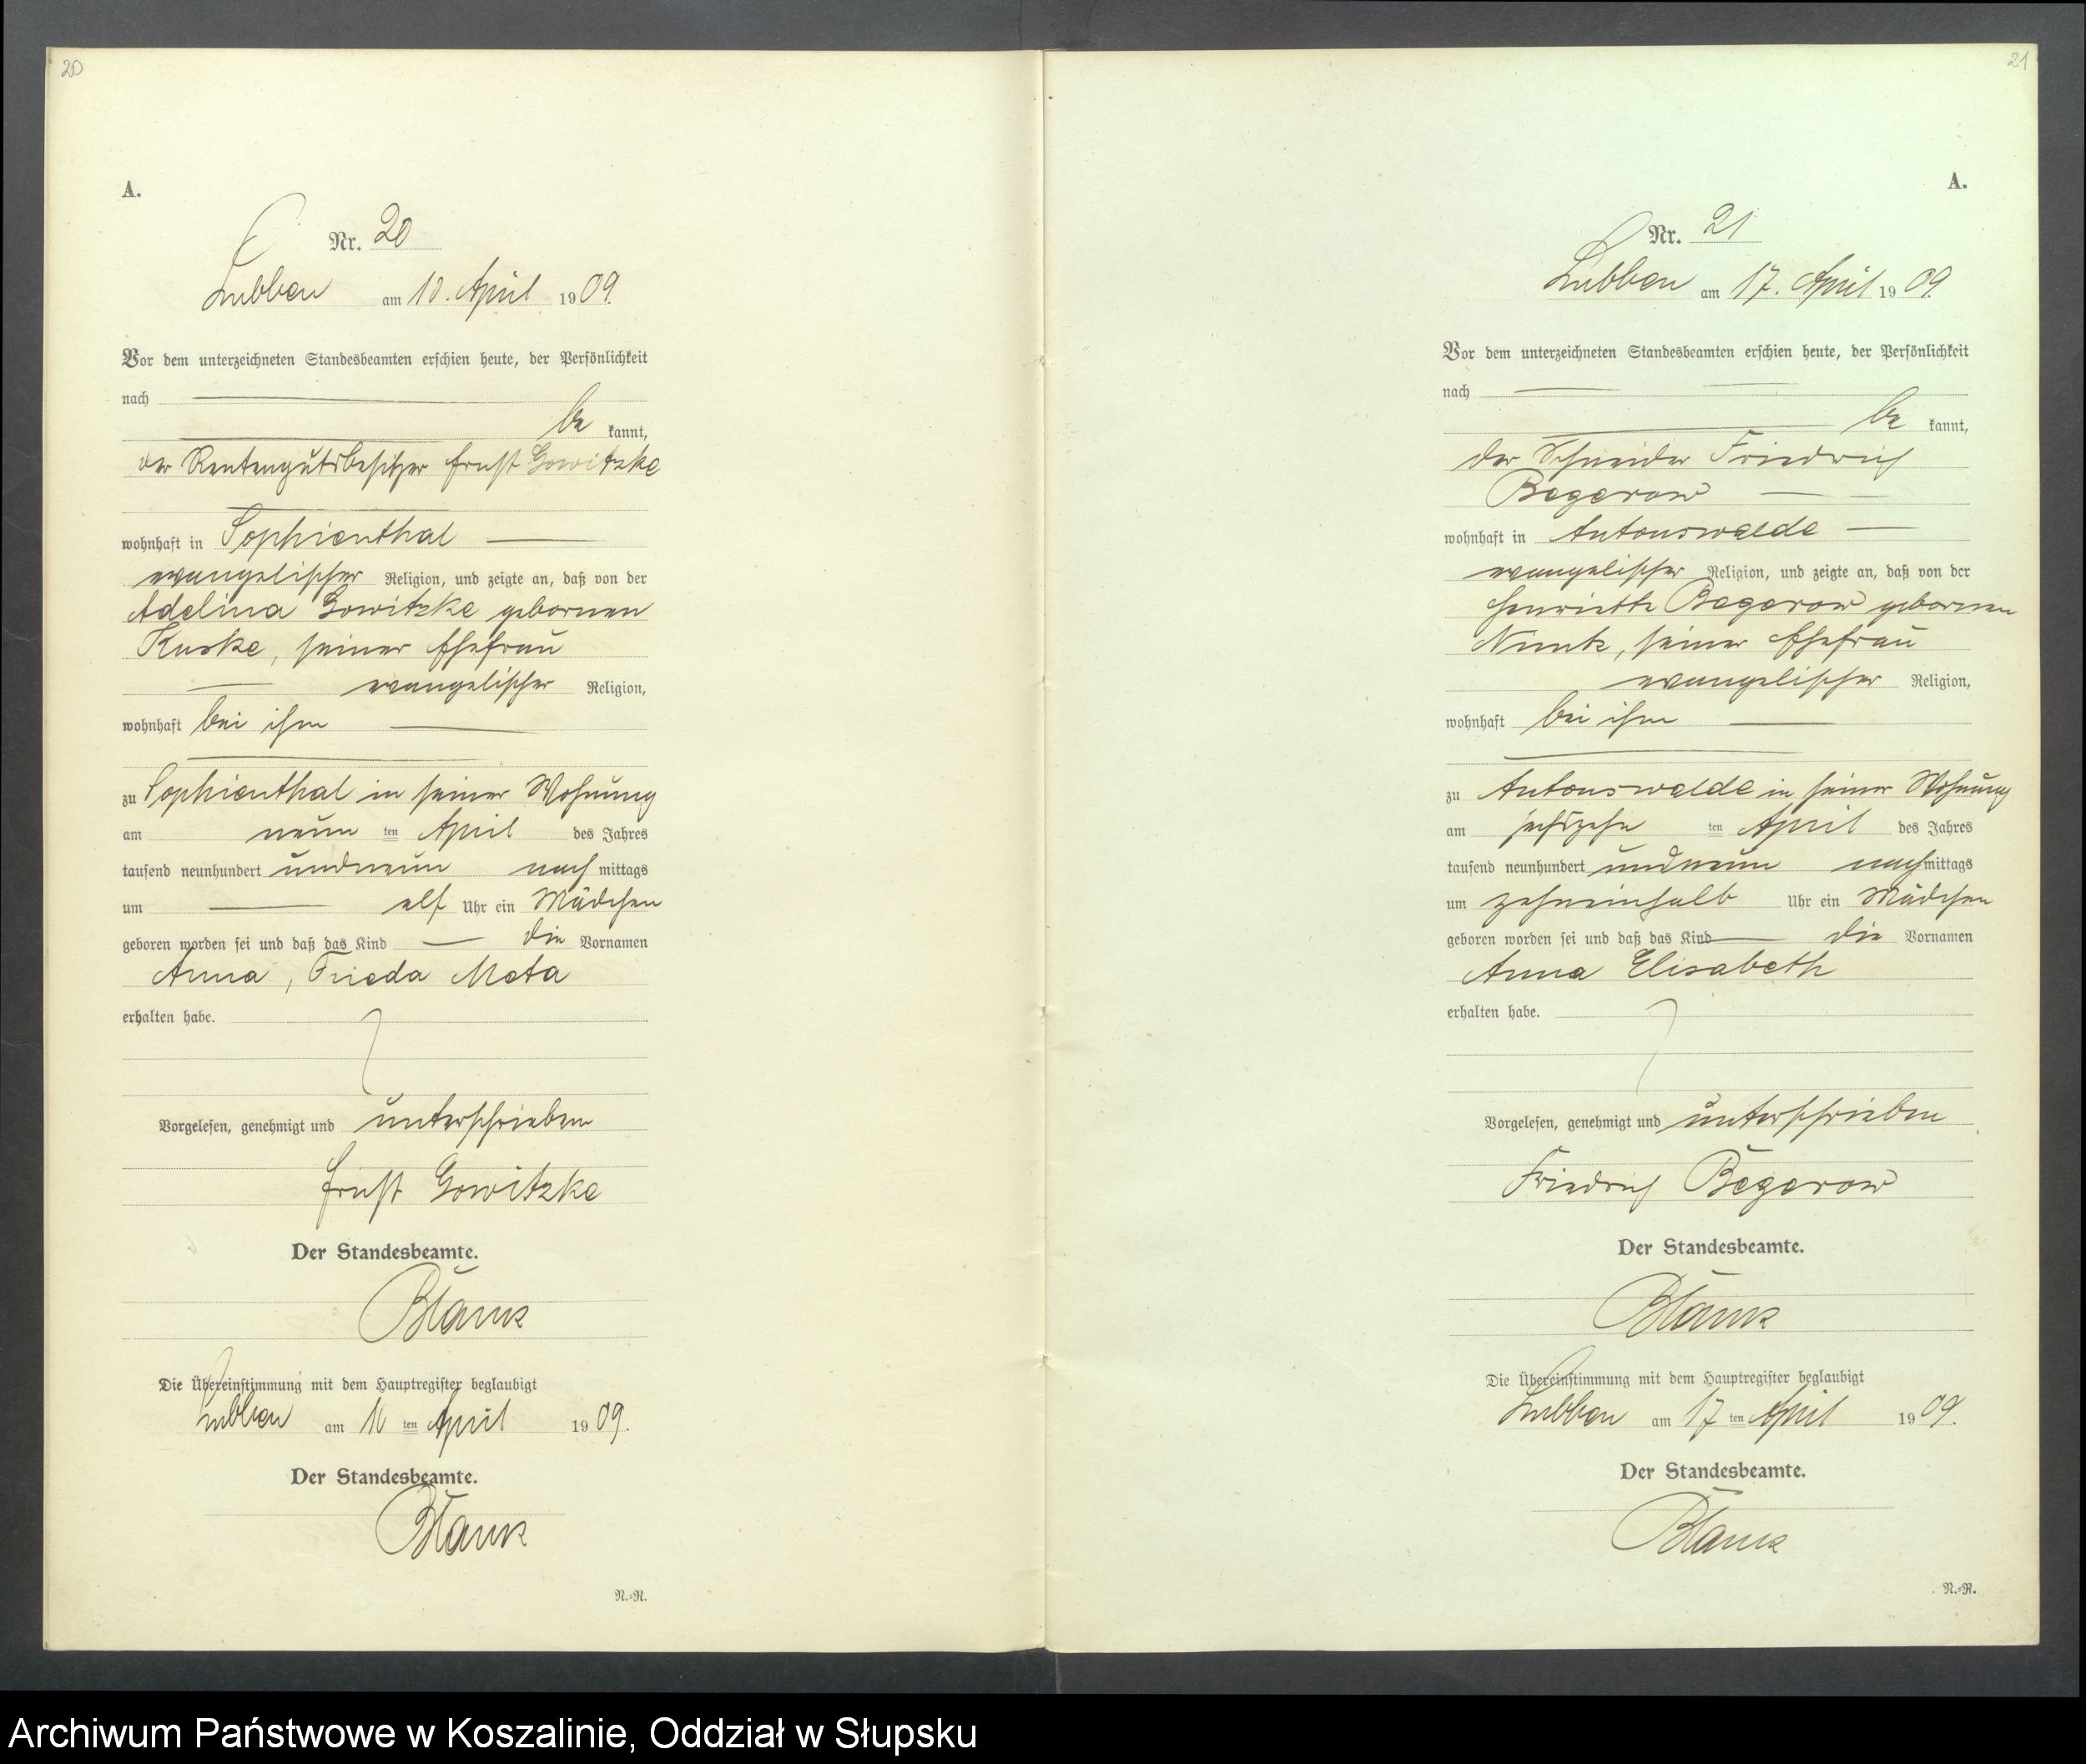 20
A.
Nr. 20
Lubben am 10. April 1909.
Vor dem unterzeichneten Standesbeamten erschien heute, der Persönlichkeit
nach
be kannt,
der Rentengutsbesitzer Ernst Gowitzke
wohnhaft in Sophienthal
evangelischer Religion, und zeigte an, daß von der
Adelina Gowitzke gebornen
Kuske, seiner Ehefrau
evangelischer Religion,
wohnhaft bei ihm
zu Sophienthal in seiner Wohnung
am neun ten April des Jahres
tausend neunhundert undneun nach mittags
um elf Uhr ein Mädchen
geboren worden sei und daß das Kind die Vornamen
Anna, Frieda Meta
erhalten habe.
Vorgelesen, genehmigt und unterschrieben
Ernst Gowitzke
Der Standesbeamte.
Blank
Die Übereinstimmung mit dem Hauptregister beglaubigt
Lubben am 10 ten April 1909.
Der Standesbeamte.
Blank
N.=R.
21
A.
Nr. 21
Lubben am 17. April 1909.
Vor dem unterzeichneten Standesbeamten erschien heute, der Persönlichkeit
nach
be kannt,
der Schneider Friedrich
Begerow
wohnhaft in Antonswalde
evangelischer Religion, und zeigte an, daß von der
Henriette Begerow gebornen
seiner Ehefrau
evangelischer Religion,
wohnhaft bei ihm
zu Antonswalde in seiner Wohnung
am sechszehn ten April des Jahres
tausend neunhundert undneun nachmittags
um zehneinhalb Uhr ein Mädchen
geboren worden sei und daß das Kind die Vornamen
Anna Elisabeth
erhalten habe.
Vorgelesen, genehmigt und unterschrieben
Friedrich Begerow
Der Standesbeamte.
Blank
Die Übereinstimmung mit dem Hauptregister beglaubigt
Lubben am 17 ten April 1909.
Der Standesbeamte.
Blank
N.=R.
Archiwum Państwowe w Koszalinie, Oddział w Słupsku